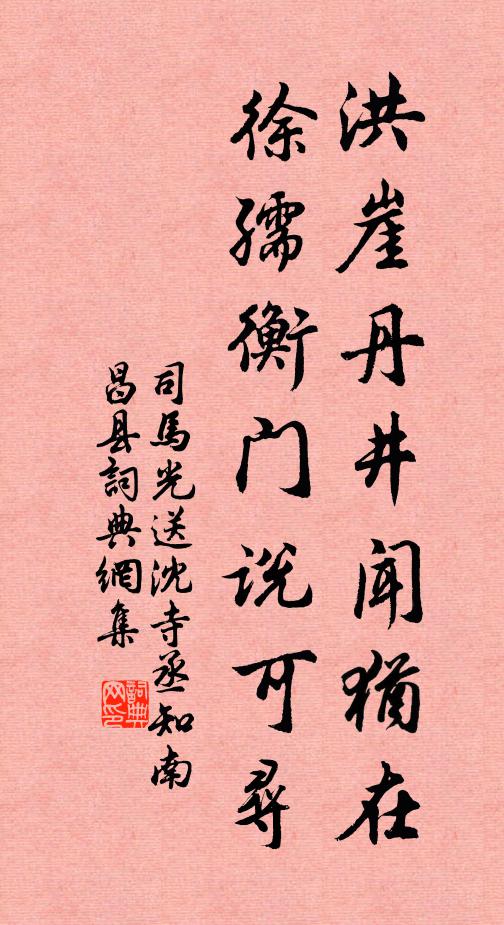 洪崖丹井闻犹在
徐孺衡门说可尋
司馬光送沈寺丞知南
昌县詞典網集
詞典
网印